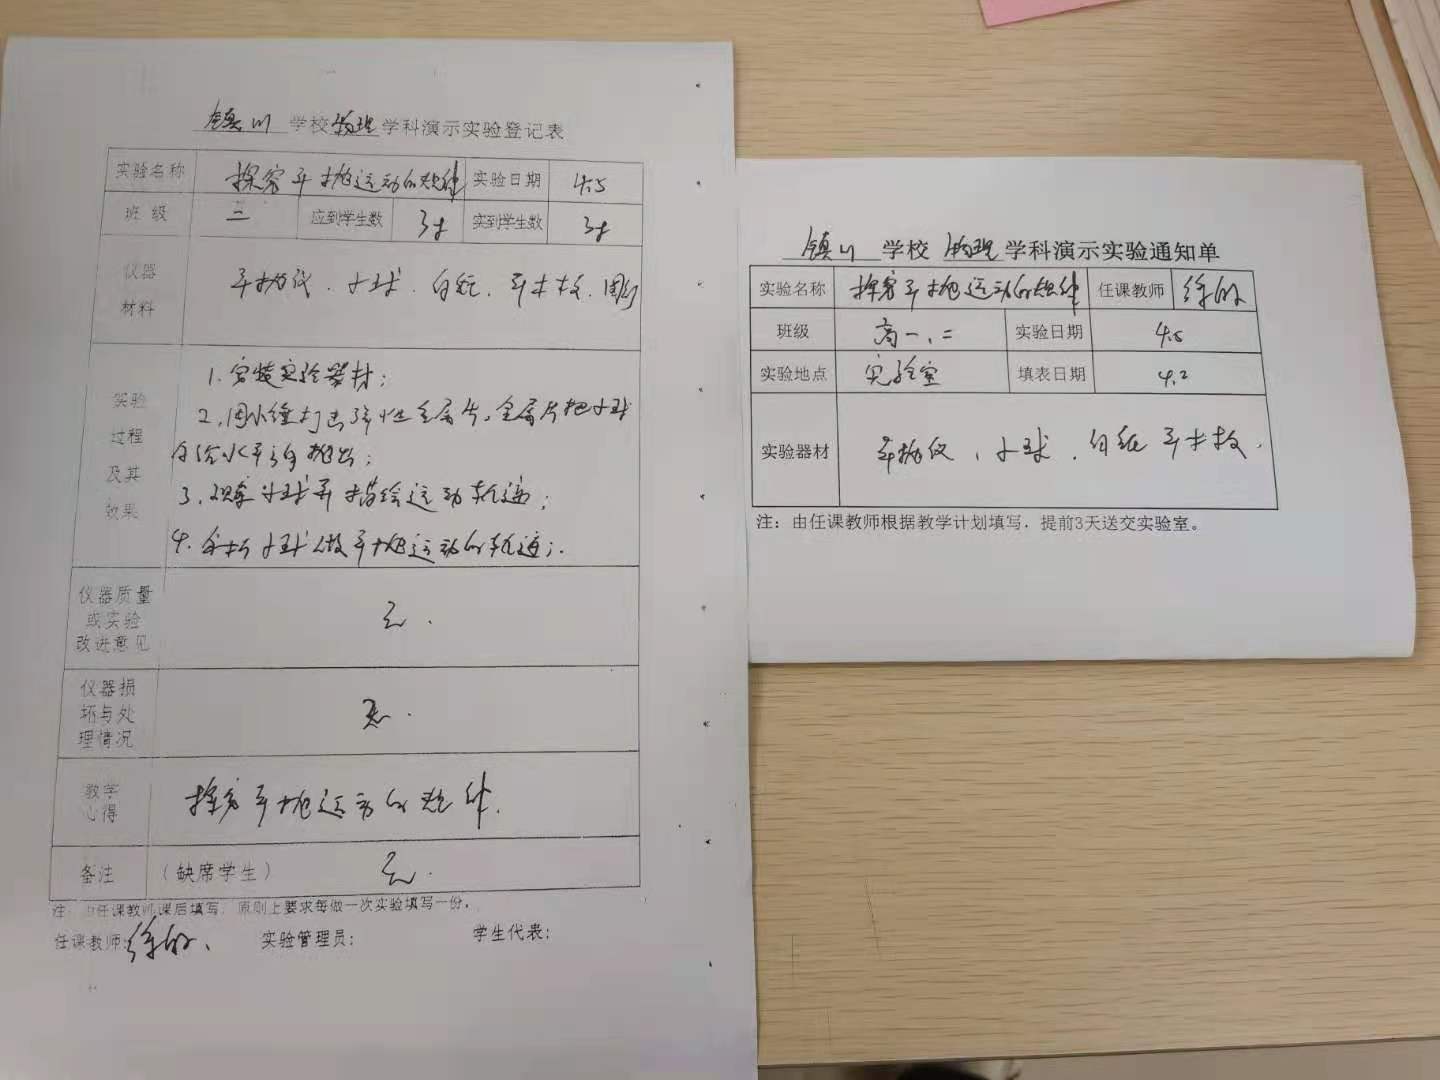 镇川 学校 物理 学科演示实验登记表
实验名称 探究平抛运动的规律 实验日期 4.5
班 级 三 应到学生数 实到学生数
仪器 平抛仪、小球、白纸、平木板、图钉
材料
实验 1.安装实验器材；
过程 2.用小锤打击弹性金属片，金属片把小球
及其 沿水平方向抛出；
效果 3.观察小球并描绘运动轨迹；
4.分析小球做平抛运动的轨迹；
仪器质量
或实验 无.
改进意见
仪器损
坏与处 无.
理情况
教学 探究平抛运动的规律.
心得
备注 （缺席学生） 无.
注：由任课教师课后填写，原则上要求每做一次实验填写一份。
任课教师: 实验管理员: 学生代表:
镇川 学校 物理 学科演示实验通知单
实验名称 探究平抛运动的规律 任课教师
班级 高一、二 实验日期 4.5
实验地点 实验室 填表日期 4.2
实验器材 平抛仪、小球、白纸 平木板.
注：由任课教师根据教学计划填写，提前3天送交实验室。